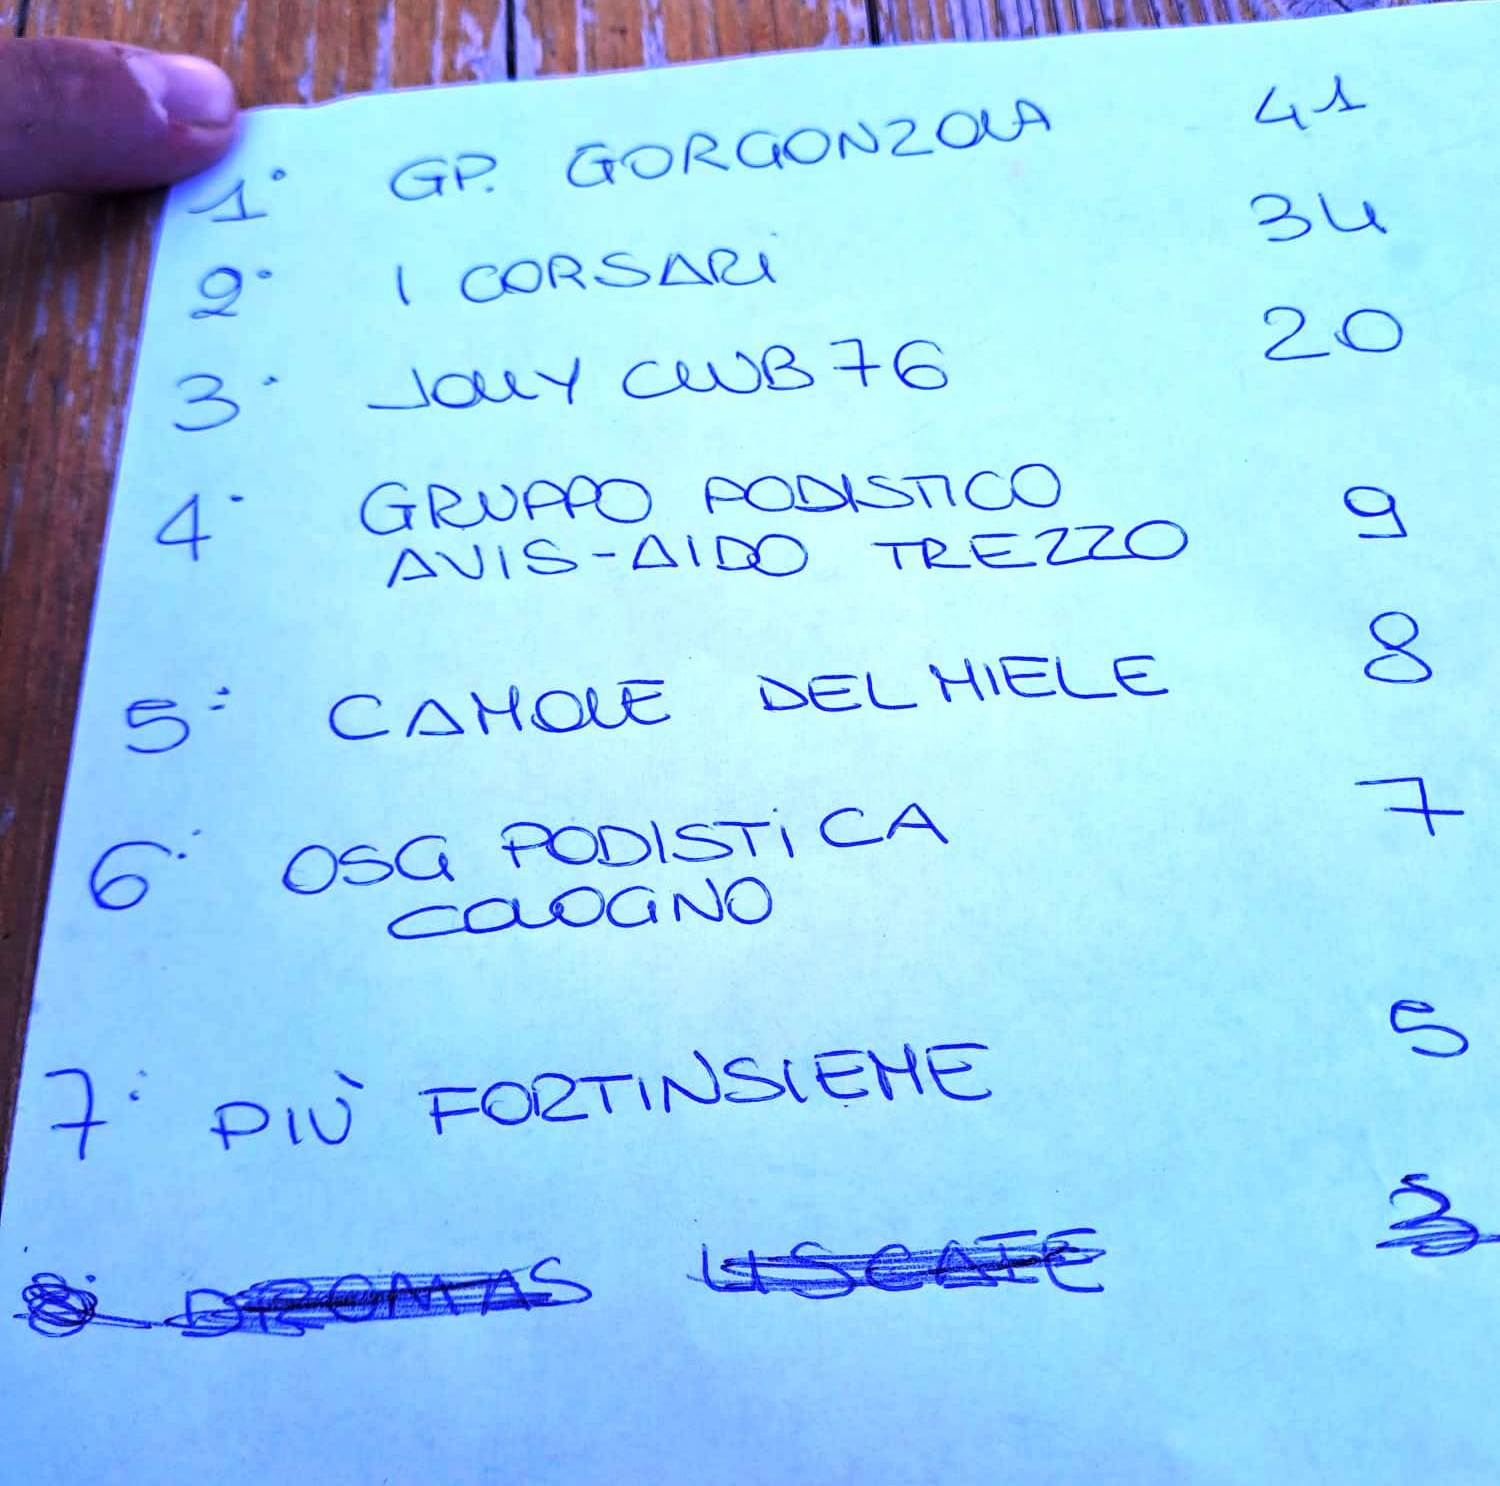 1° GP. GORGONZOLA 41
2° I CORSARI 34
3° JOLLY CLUB 76 20
4° GRUPPO PODISTICO 9
AVIS-AIDO TREZZO
5° CAMOLE DEL MIELE 8
6° OSG PODISTICA 7
COLOGNO
7° PIÙ FORTINSIEME 5
8° LISCATE 3